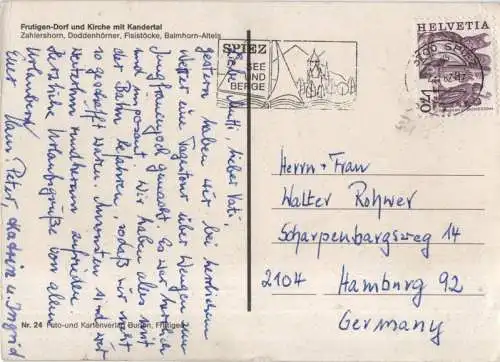 Frutigen-Dorf und Kirche mit Kandertal
Zahlershorn, Doddenhörner, Fisistöcke, Balmhorn-Altels
SPIEZ
SEE
UND
BERGE
3700 SPIEZ
HELVETIA
Liebe Mutti, lieber Vati,
gestern haben wir bei herrlichem
Wetter eine Tagestour über Wengen zum
Jungfraujoch gemacht. Es war herrlich
und imposant. Wir haben alles mit
der Bahn befahren, sodaß wir nicht
so geschafft waren. Ansonsten sind wir
weiterhin rundherum zufrieden.
Herzliche Urlaubsgrüße von allen
Urlaubern!
Euer Hans Peter, und Ingrid
Herrn + Frau
Walter Rohwer
Scharpenbargsweg 14
2104 Hamburg 92
Germany
Nr. 24 Foto-und Kartenverlag Frutigen